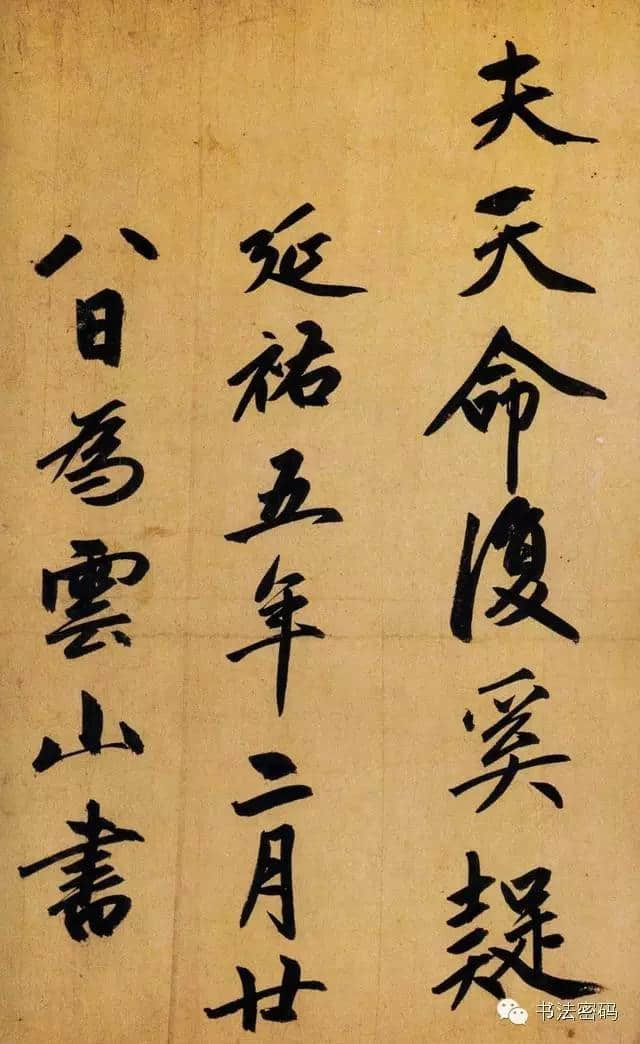 夫天命復奚疑
延祐五年二月廿
八日為雲山書
书法密码